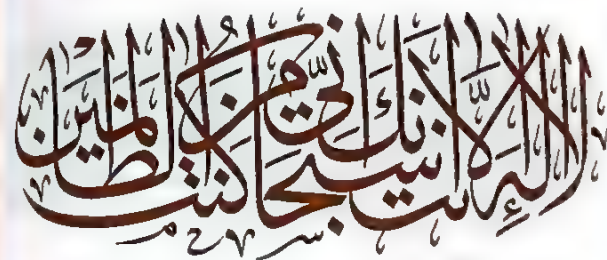 لَا إِلَهَ إِلَّا أَنْتَ سُبْحَانَكَ إِنِّي كُنْتُ مِنَ الظَّالِمِينَ